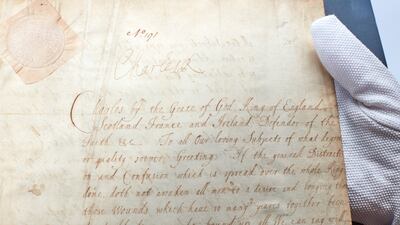 No 191
Charles R
Charles by the Grace of God, King of England
Scotland, France and Ireland Defender of the
Faith &c. To all Our loving Subjects of what degree
or quality soever, Greeting. If the general Distracti
on and Confusion which is spread over the whole King
dome, doth not awaken all men to a desire and longing that
those Wounds which have so many years together been
all We can say will